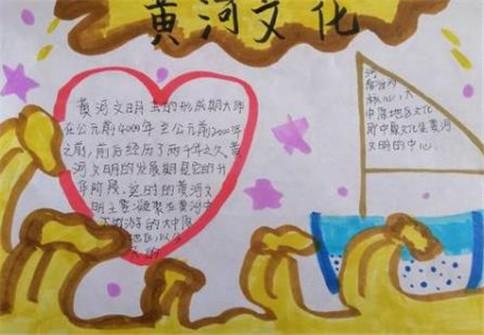 黄河文化
黄河文明 的形成期大体
在公元前4000年至公元前2000年
之前，前后经历了两千年之久，黄
河文明的发展期是它的升
华阶段，这时的黄河文
明主要凝聚在黄河中
下游的大中原
地区，以今
河
核心，大
中原地区文化
即中原文化是黄河
文明的中心.